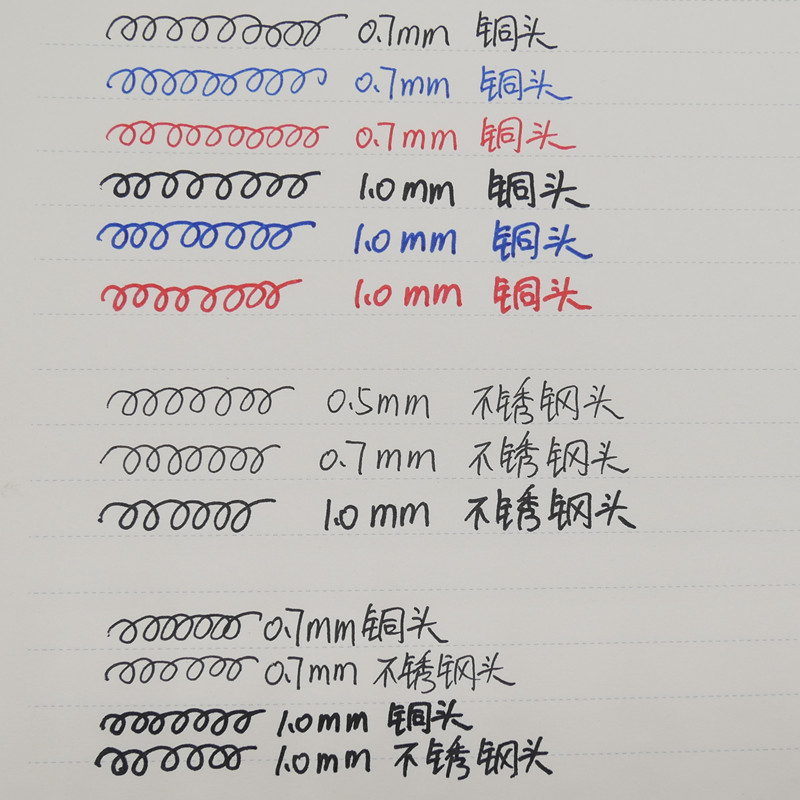 0.7mm 铜头
0.7mm 铜头
0.7mm 铜头
1.0mm 铜头
1.0mm 铜头
1.0mm 铜头
0.5mm 不锈钢头
0.7mm 不锈钢头
1.0mm 不锈钢头
0.7mm铜头
0.7mm 不锈钢头
1.0mm 铜头
1.0mm 不锈钢头